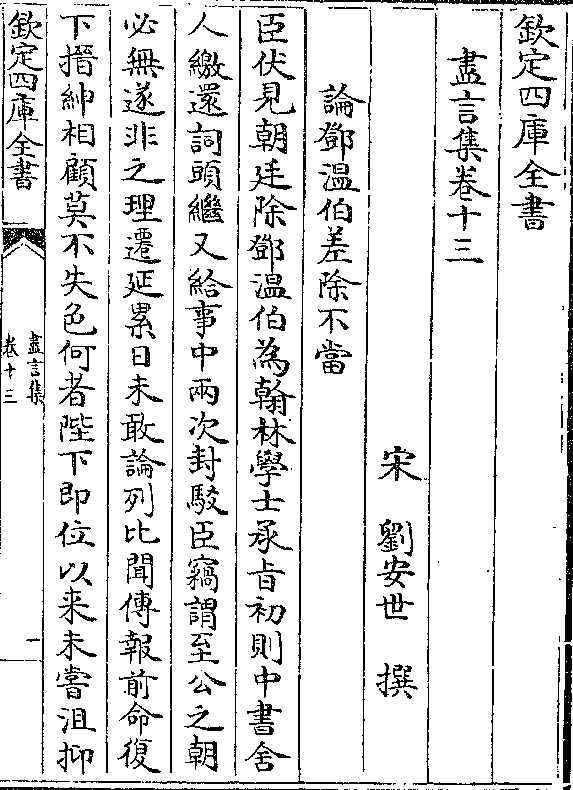 欽定四庫全書
盡言集卷十三
宋　劉安世　撰
論鄧溫伯差除不當
臣伏見朝廷除鄧溫伯為翰林學士承旨初則中書舍
人繳還詞頭繼又給事中兩次封駮臣竊謂至公之朝
必無遂非之理遷延累日未敢論列比聞傳報前命復
下搢紳相顧莫不失色何者陛下即位以来未嘗沮抑
欽定四庫全書
盡言集
卷十三
一